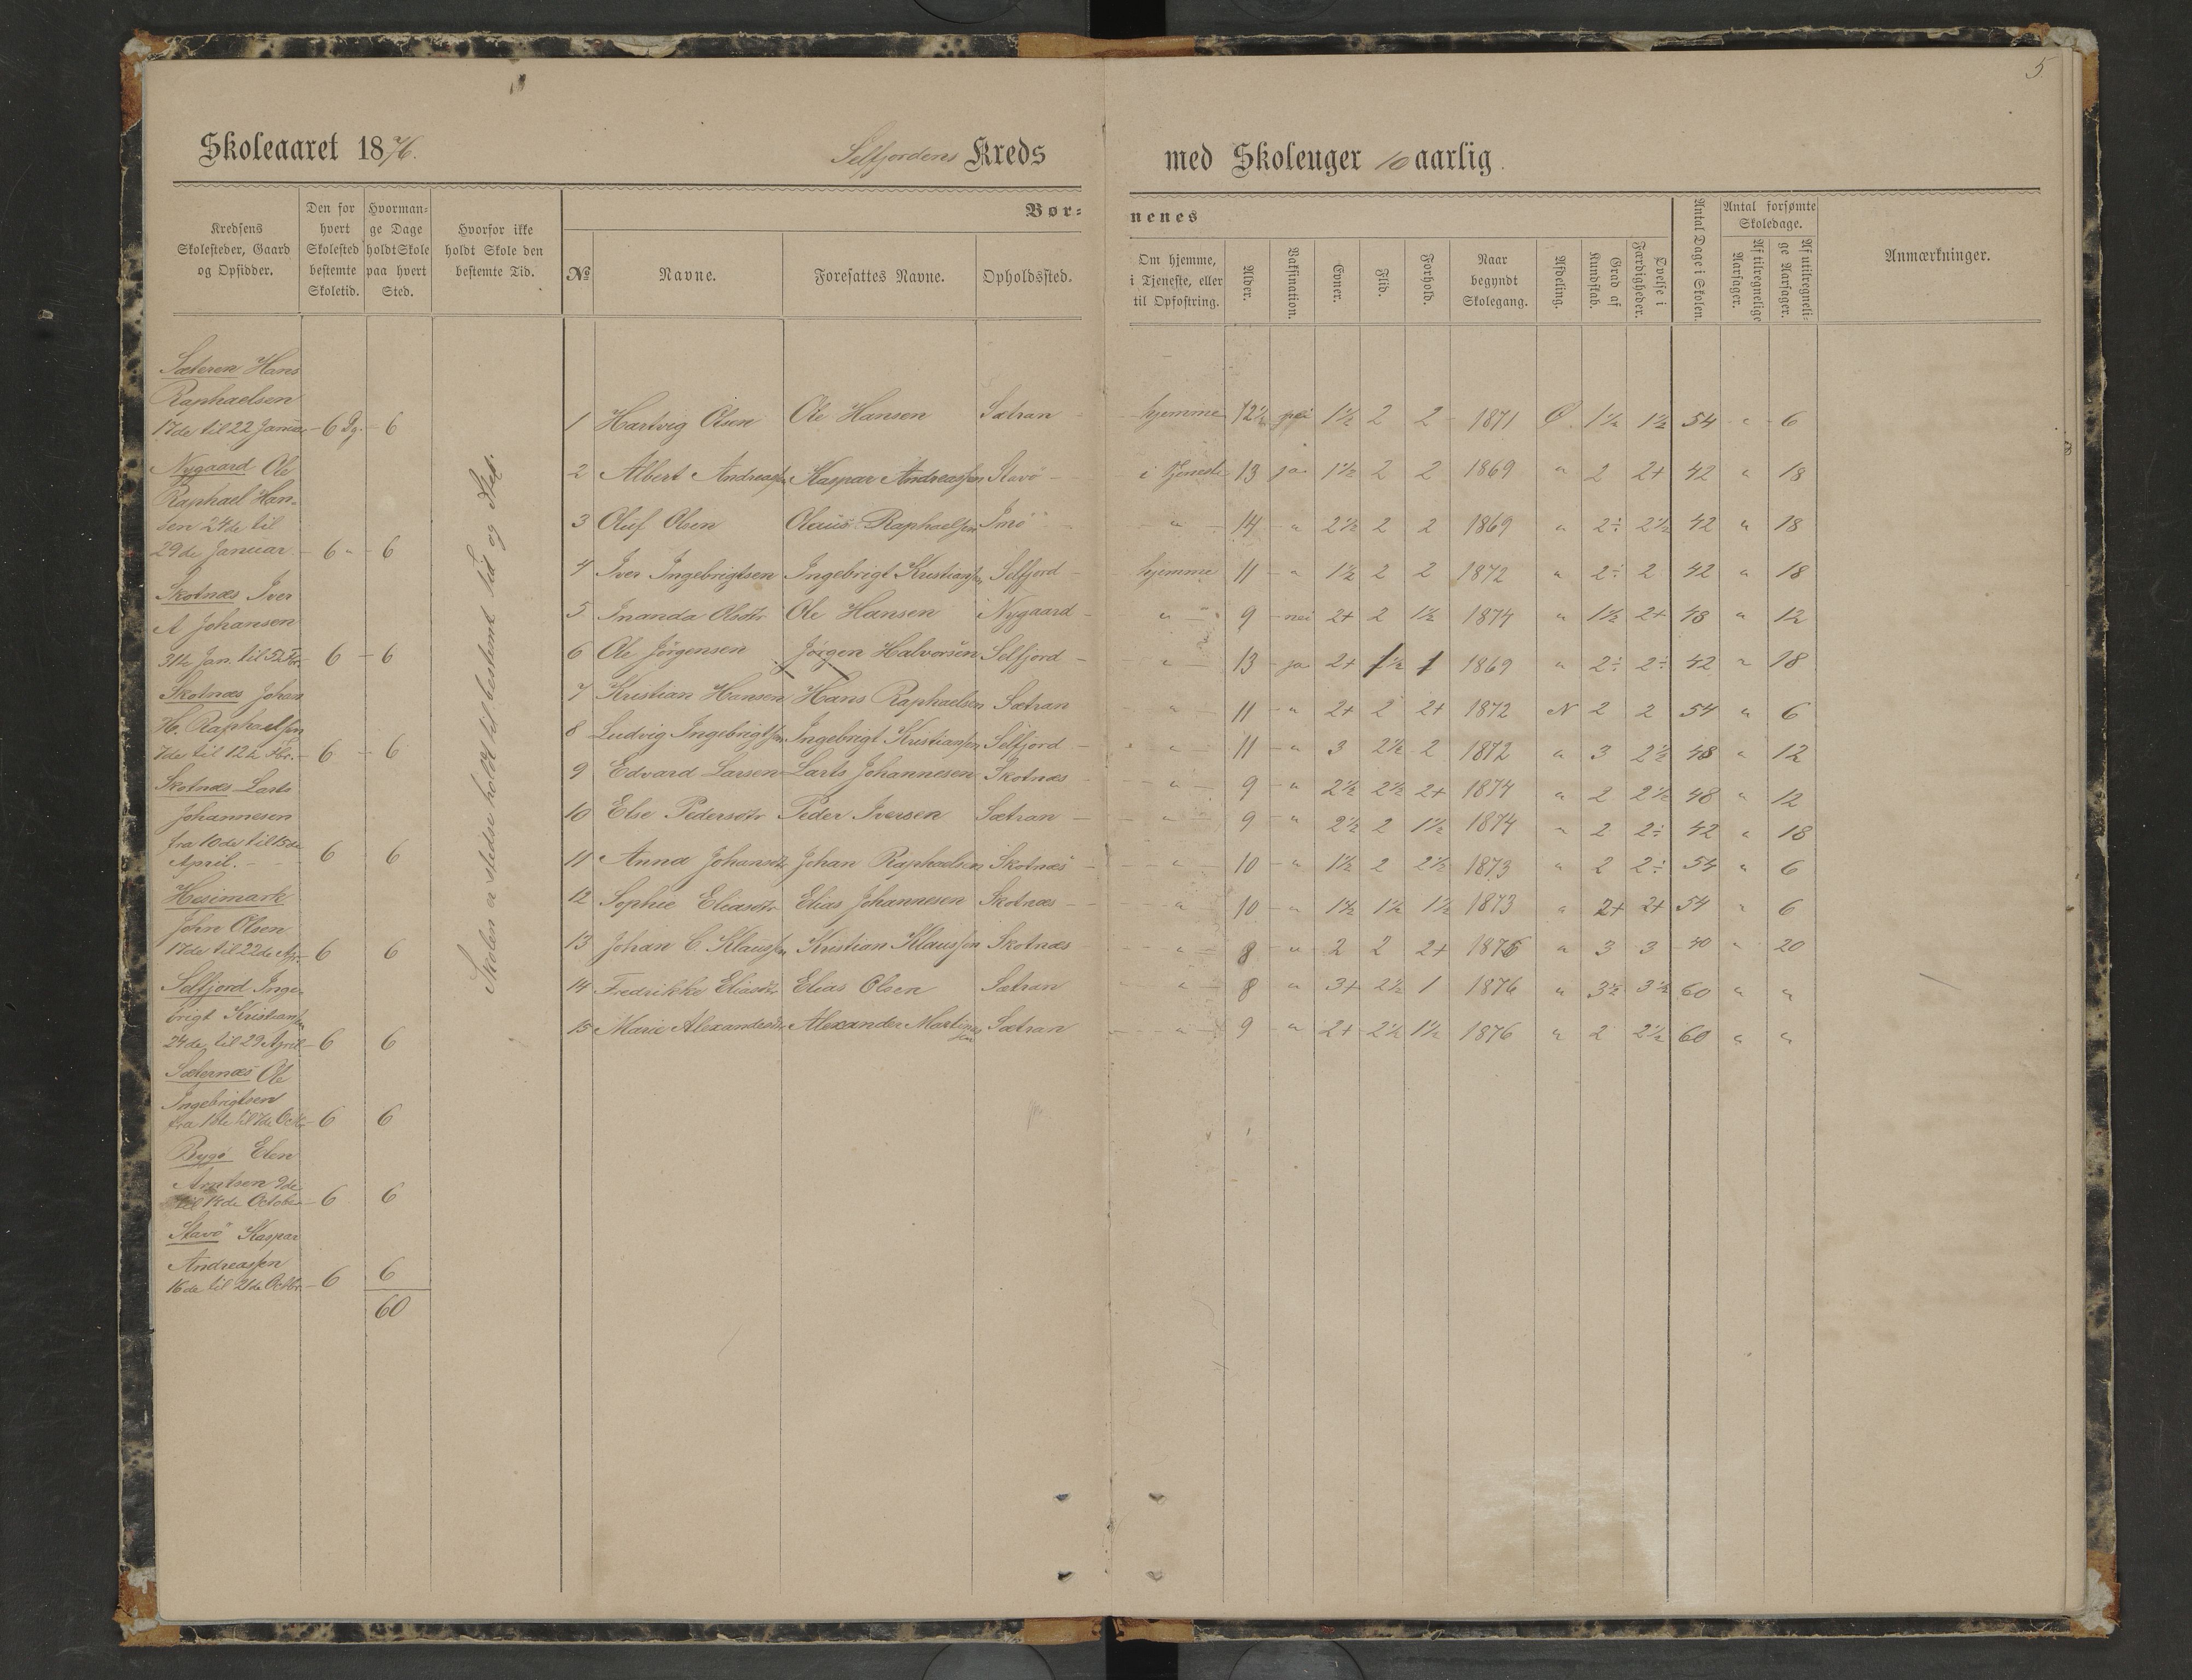 5
Skoleaaret 1876. Selfjordens Kreds med Skoleuger 10 aarlig.
Kredsens Skolesteder, Gaard og Opsidder.
Den for hvert Skolested bestemte Skoletid.
Hvormange Dage holdt Skole paa hvert Sted.
Hvorfor ikke holdt Skole den bestemte Tid.
Børnenes
№
Navne.
Foresattes Navne.
Opholdssted.
Om hjemme, i Tjeneste, eller til Opfostring.
Alder.
Vaksination.
Evner.
Flid.
Forhold.
Naar begyndt Skolegang.
Afdeling.
Grad af Kundskab.
Øvelse i Færdigheder.
Antal Dage i Skolen.
Antal forsømte Skoledage.
Af tilregnelige Aarsager.
Af utilregnelige Aarsager.
Anmærkninger.
Sæteren Hans
Raphaelsen
17de til 22 Januar 6 Dg. 6
Nygaard Ole
Raphael Han-
sen 24de til
29de Januar 6 " 6
Skotnæs Iver
A Johansen
31te Jan. til 5 Fbr. 6 6
Skotnæs Johan
H. Raphaelsen
7de til 12te Fbr. 6 6
Skotnæs Larts
Johannesen
fra 10de til 15de
April. 6 6
Hesimark
John Olsen
17de til 22de Apr. 6 6
Selfjord Inge-
brigt Kristiansen
24de til 29 April 6 6
Sæternæs Ole
Ingebrigtsen
fra 2de til 7de Octb. 6 6
Bygø Elen
Arntsen 9de
til 14de October 6 6
Stavö Kaspar
Andreassen
16de til 21de Octbr. 6 6
60
Skolen er stedse holdt til bestemt Tid og Sted.
1 Hartvig Olsen Ole Hansen Sætran hjemme 12½ nei 1½ 2 2 1871 Ø 1½ 1½ 54 " 6
2 Albert Andreassen Kaspar Andreassen Stavö i Tjeneste 13 ja 1½ 2 2 1869 " 2 2+ 42 " 18
3 Oluf Olsen Olaus Raphaelsen Imö " 14 " 2½ 2 2 1869 " 2÷ 2½ 42 " 18
4 Iver Ingebrigtsen Ingebrigt Kristiansen Selfjord hjemme 11 " 1½ 2 2 1872 " 2÷ 2 42 " 18
5 Inanda Olsdtr Ole Hansen Nygaard " 9 nei 2+ 2 1½ 1874 " 1½ 2+ 48 " 12
6 Ole Jörgensen Jörgen Halvorsen Selfjord " 13 ja 2+ 1½ 1 1869 " 2÷ 2÷ 42 " 18
7 Kristian Hansen Hans Raphaelsen Sætran " 11 " 2+ 2 2+ 1872 N 2 2 54 " 6
8 Ludvig Ingebrigtsen Ingebrigt Kristiansen Selfjord " 11 " 3 2½ 2 1872 " 3 2½ 48 " 12
9 Edvard Larsen Larts Johannesen Skotnæs " 9 " 2½ 2½ 2+ 1874 " 2 2½ 48 " 12
10 Else Pedersdtr Peder Iversen Sætran " 9 " 2½ 2 1½ 1874 " 2 2÷ 42 " 18
11 Anna Johansdtr Johan Raphaelsen Skotnæs " 10 " 1½ 2 2½ 1873 " 2 2÷ 54 " 6
12 Sophie Eliasdtr Elias Johannesen Skotnæs " 10 " 1½ 1½ 1½ 1873 " 2+ 2+ 54 " 6
13 Johan C Klaussen Kristian Klaussen Skotnæs " 8 " 2 2 2+ 1876 " 3 3 40 " 20
14 Fredrikke Eliasdtr Elias Olsen Sætran " 8 " 3+ 2½ 1 1876 " 3½ 3½ 60 " "
15 Marie Alexandersdtr Alexander Martinussen Sætran " 9 " 2+ 2½ 1½ 1876 " 2 2½ 60 " "